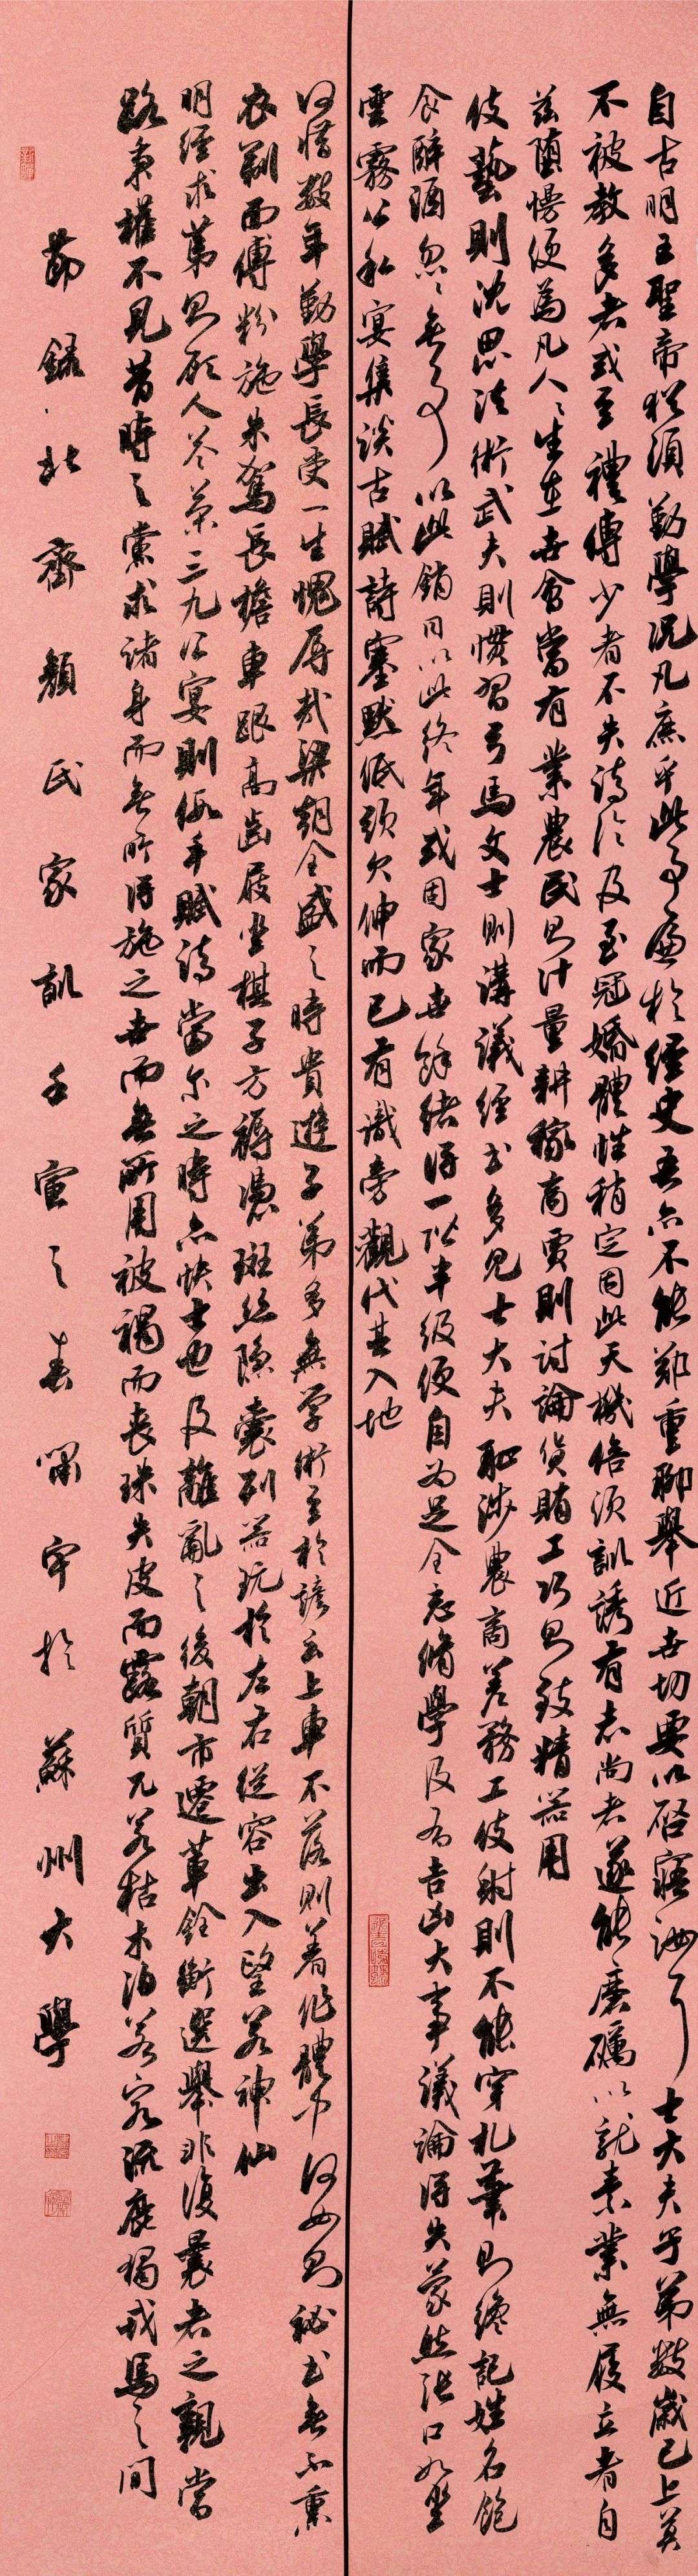 自古明王聖帝猶須勤學況凡庶乎此事遍於經史吾亦不能鄭重聊舉近世切要以啓寤汝耳士大夫子弟數歲已上莫
不被教多者或至禮傳少者不失詩論及至冠婚體性稍定因此天機倍須訓誘有志尚者遂能磨礪以就素業無履立者自
茲墮慢便為凡人人生在世會當有業農民則計量耕稼商賈則討論貨賄工巧則致精器用
伎藝則沈思法術武夫則慣習弓馬文士則講議經書多見士大夫恥涉農商差務工伎射則不能穿札筆則纔記姓名飽
食醉酒忽忽無事以此銷日以此終年或因家世餘緒得一階半級便自為足全忘修學及有吉凶大事議論得失蒙然張口如坐
雲霧公私宴集談古賦詩塞默低頭欠伸而已有識旁觀代其入地
何惜數年勤學長受一生愧辱哉梁朝全盛之時貴遊子弟多無學術至於諺云上車不落則著作體中何如則秘書無不熏
衣剃面傅粉施朱駕長檐車跟高齒屐坐棋子方褥憑斑絲隱囊列器玩於左右從容出入望若神仙
明經求第則顧人答策三九公宴則假手賦詩當爾之時亦快士也及離亂之後朝市遷革銓衡選舉非復曩者之親當
路秉權不見昔時之黨求諸身而無所得施之世而無所用被褐而喪珠失皮而露質兀若枯木泊若窮流鹿獨戎馬之間
節錄北齊顏氏家訓壬寅之春開宇於蘇州大學